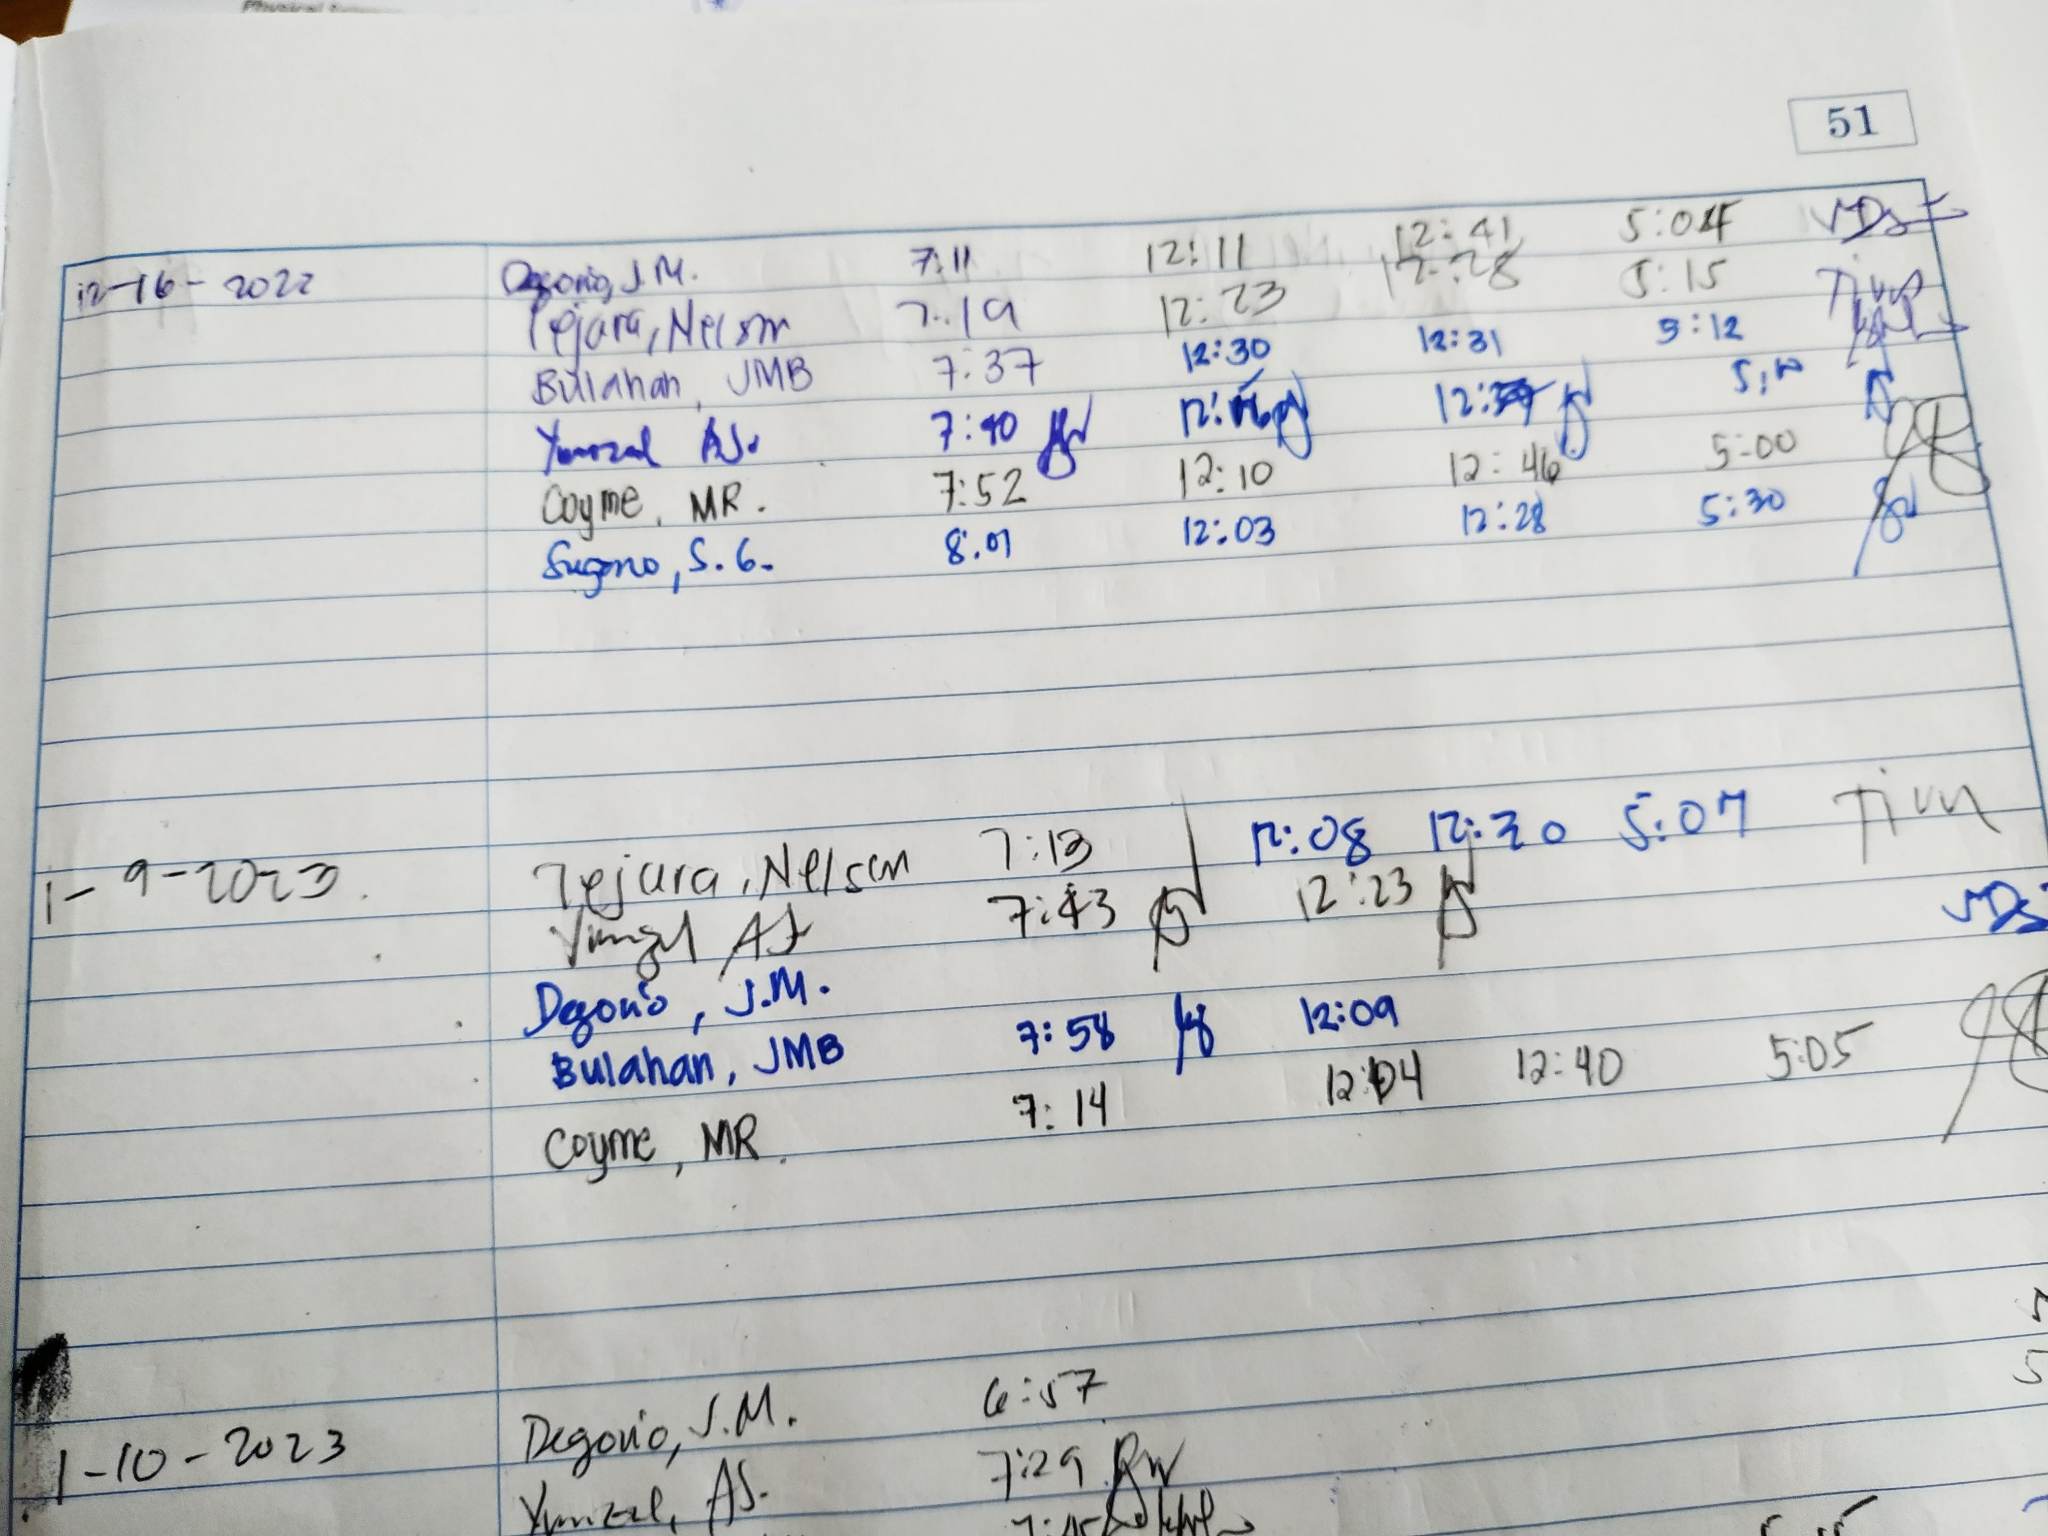 51
12-16-2022 Degorio, J.M. 7:11 12:11 12:41 5:04
Tejara, Nelson 7:19 12:23 12:28 5:15
Bulahan, JMB 7:37 12:30 12:31 5:12
Yunzal AJ. 7:40
Coyme, MR. 7:52 12:10 12:46 5:00
S.G. 8:01 12:03 12:28 5:30
1-9-2023 Tejara, Nelson 7:13 12:08 12:30 5:07
Yunzal AJ 7:43 12:23
Degorio, J.M.
Bulahan, JMB 7:58 12:09
Coyme, MR. 7:14 12:04 12:40 5:05
1-10-2023 Degorio, J.M. 6:57
Yunzal, AJ. 7:29